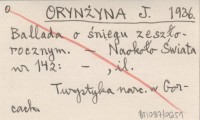 o ORYNŻYNA J. 1936.
Ballada o śniegu zeszło-
rocznym. — Naokoło Świata
nr 142: - , il.
Turystyka narc. w Gor-
cach.